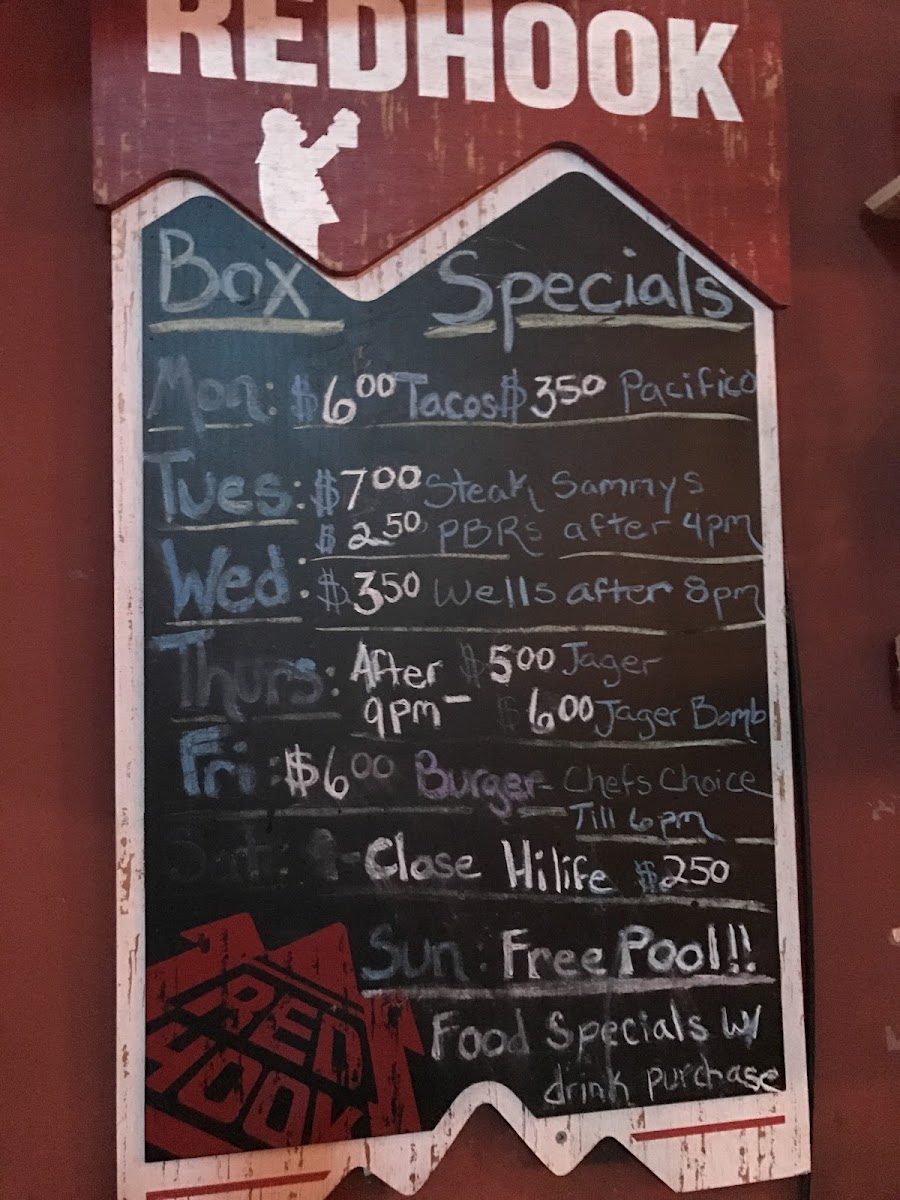 REDHOOK
Box Specials
Mon: $6.00 Tacos $3.50 Pacifico
Tues: $7.00 Steak Sammys
$2.50 PBRs after 4pm
Wed: $3.50 Wells after 8pm
Thurs: After $5.00 Jager
9pm- $6.00 Jager Bomb
Fri: $6.00 Burger- Chefs Choice
Till 6pm
Sat: - Close Hilife $2.50
Sun: Free Pool!!
Food Specials w/
drink purchase
RED
HOOK